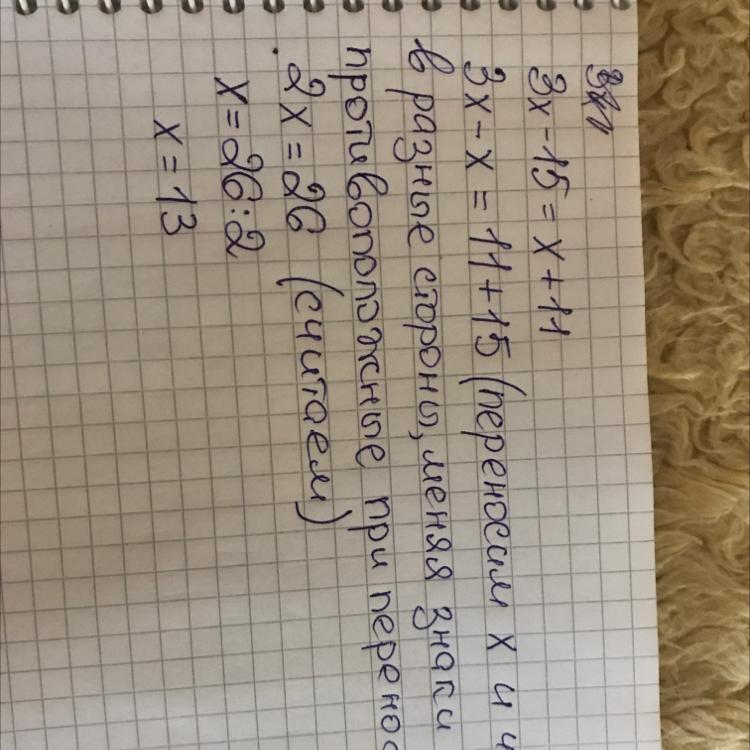 3x-15=x+11
3x-x=11+15 (переносим x и
в разные стороны, меняя знаки
противоположные при
2x=26 (считаем)
x=26:2
x=13